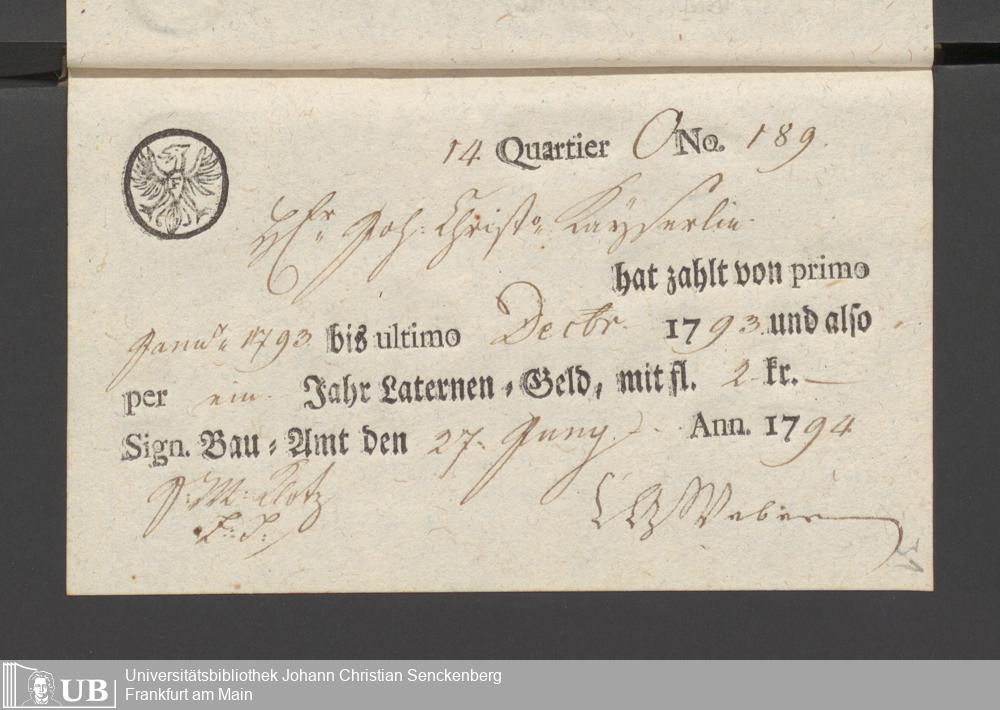 14 Quartier O No. 189.
Joh: Christ: Kayserlin
hat zahlt von primo
Janu: 1793 bis ultimo Decbr. 1793. und also
per ein Jahr Laternen-Geld, mit fl. 2 kr.
Sign. Bau-Amt den 27. Juny. Ann. 1794
J: M: Klotz
Weber
UB
Universitätsbibliothek Johann Christian Senckenberg
Frankfurt am Main